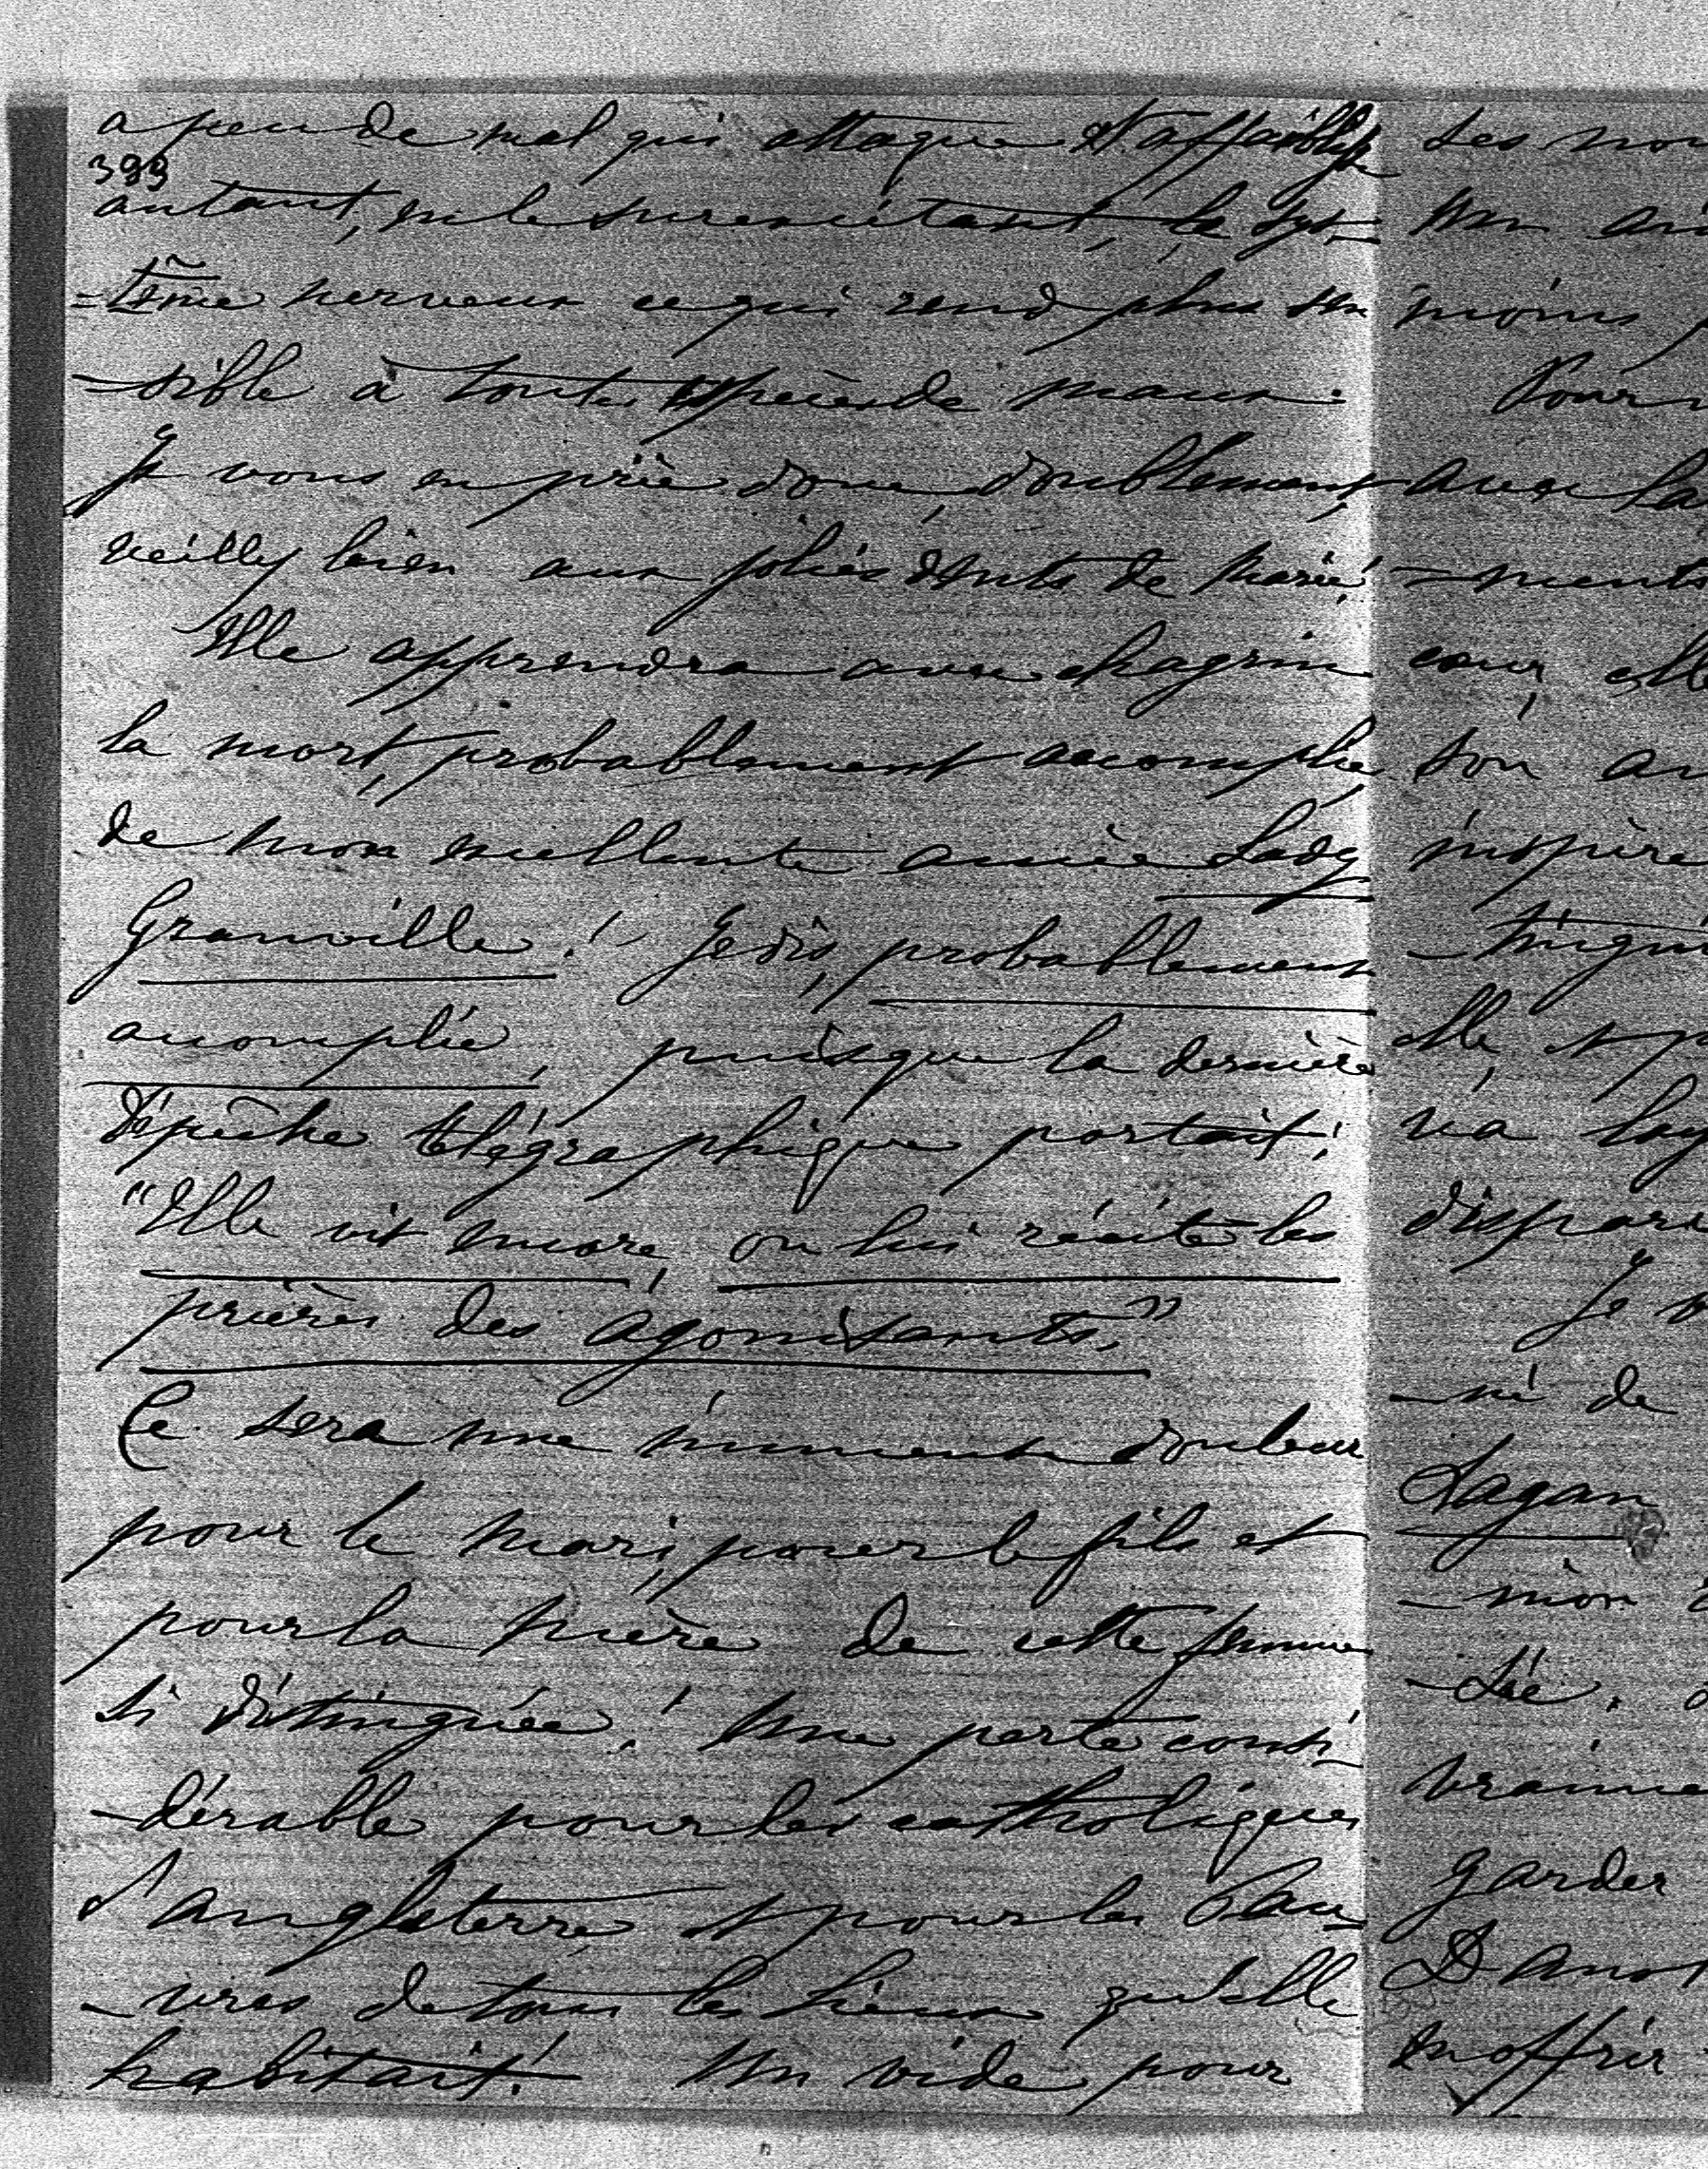 a peu de mal qui attaque et affaiblisse
393
autant, en le surexcitant, le sys-
-tême nerveux ce qui rend plus sen
-sible à toutes espèces de maux.
Je vous en prie donc doublement,
veillez bien aux jolies dents de Marie!
Elle apprendra avec chagrin
la mort, probablement accomplie
de mon excellente amie Lady
Granville! Je dis, probablement
accomplie, puisque la dernière
dépêche télégraphique portait:
"Elle vit encore, on lui récite les
prières des agonisants."
Ce sera une immense douleur
pour le mari, pour le fils et
pour la mère de cette femme
si distinguée! Une perte consi
-dérable pour les catholiques
d'angleterre et pour les Pau-
-vres de tous les lieux qu'elle
habitait! Un vide pour
ses
un
moins
Pour
avec
-ment
cœur, elle
son
inspire
-tingu
elle, et
va
Je
-né de
Sagan
garder